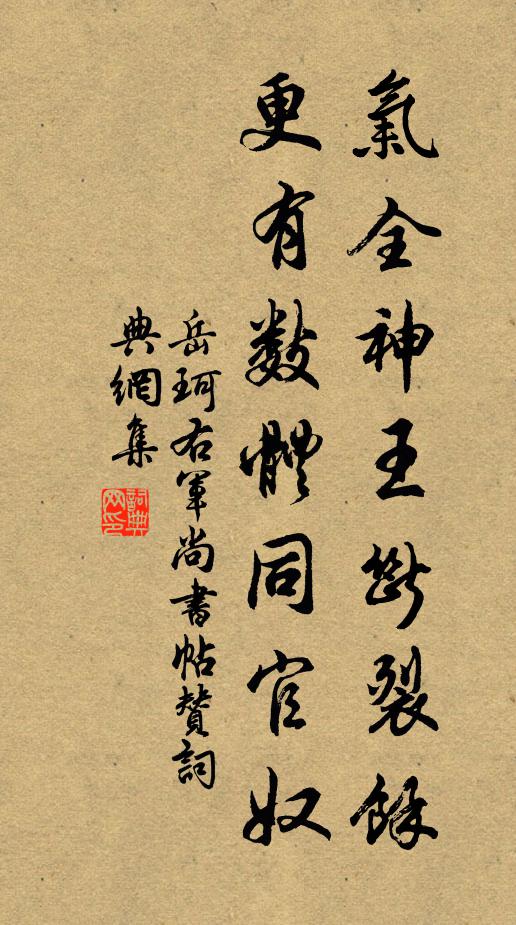 氣全神王斷裂餘
更有數體同官奴
岳珂右軍尚書帖贊詞
典網集
詞典網印